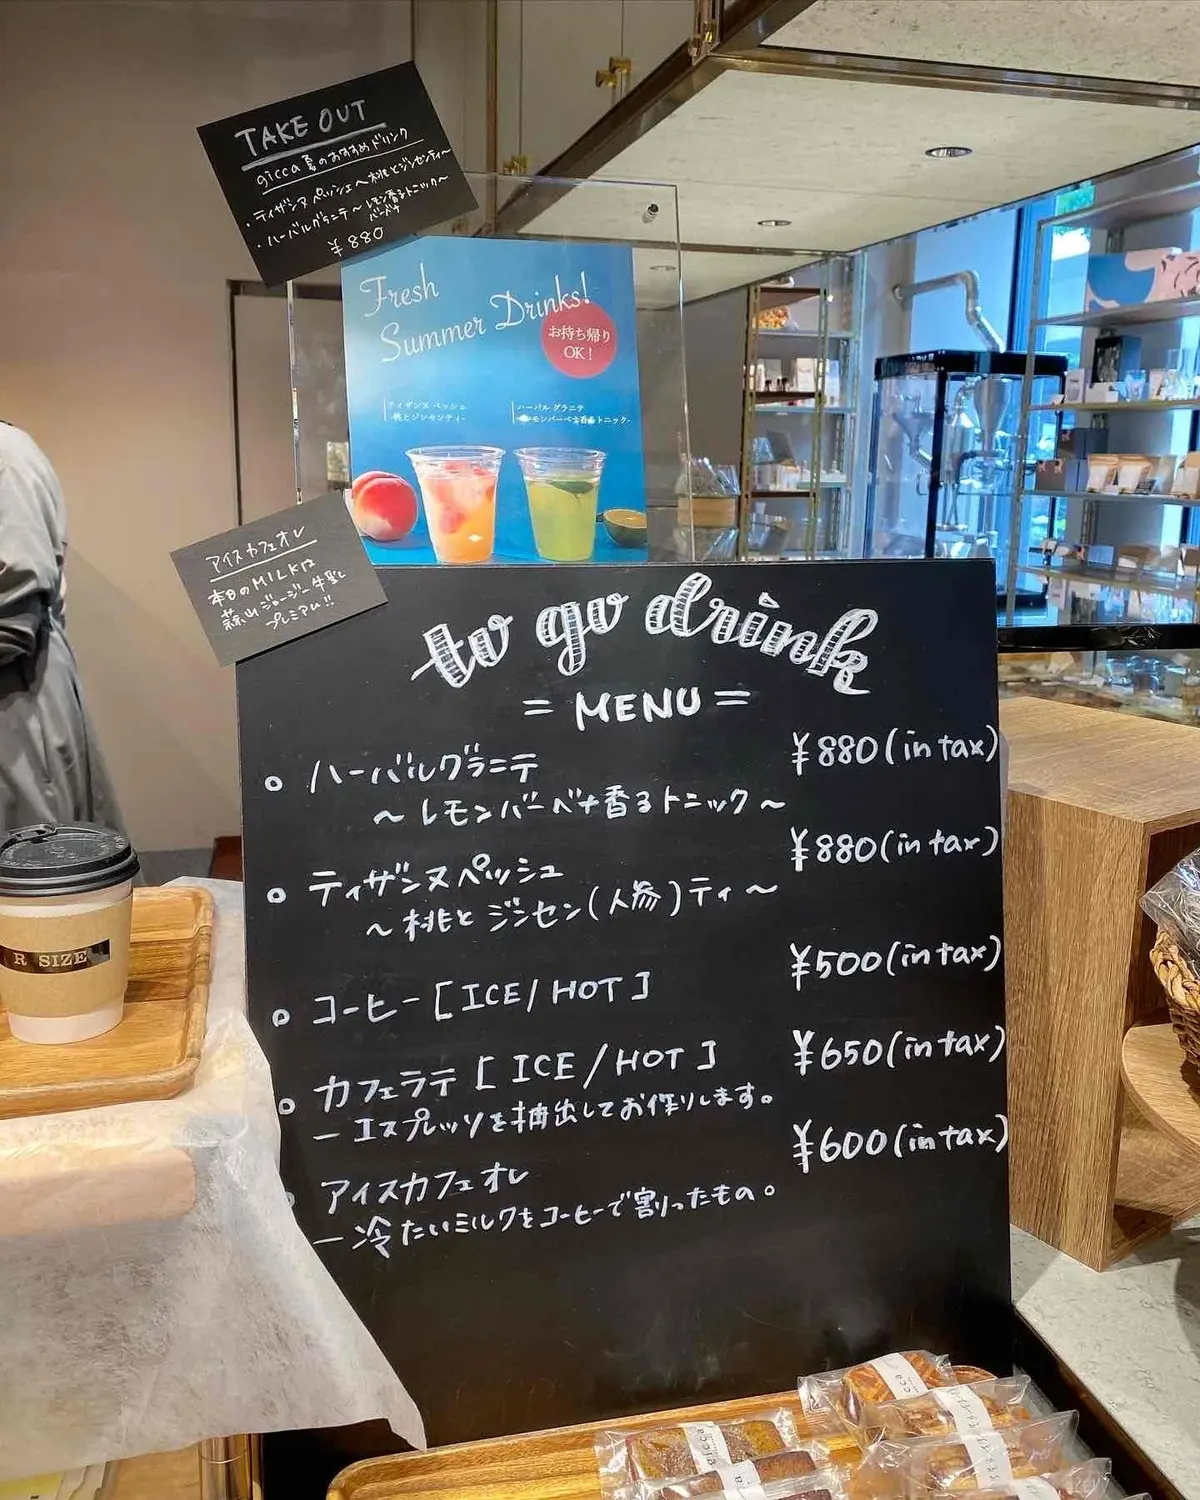 TAKE OUT
gicca 夏のおすすめドリンク
・ティザンヌ ペッシェ〜桃とジンセンティ〜
・ハーバルグラニテ〜レモン香るトニック〜
バーベナ
¥880
Fresh
Summer Drinks!
お持ち帰り
OK!
ティザンヌ ペッシェ
-桃とジンセンティ-
ハーバル グラニテ
モンバーベナ香るトニック-
アイスカフェオレ
本日のMILKは
蒜山ジャージー牛乳
プレミアム!!
to go drink
= MENU =
ハーバルグラニテ ¥880(in tax)
〜レモンバーベナ香るトニック〜
ティザンヌペッシュ ¥880(in tax)
〜桃とジンセン(人参)ティ〜
コーヒー[ICE/HOT] ¥500(in tax)
カフェラテ[ICE/HOT] ¥650(in tax)
ーエスプレッソを抽出してお作りします。
アイスカフェオレ ¥600(in tax)
ー冷たいミルクをコーヒーで割ったもの。
R SIZE
gicca